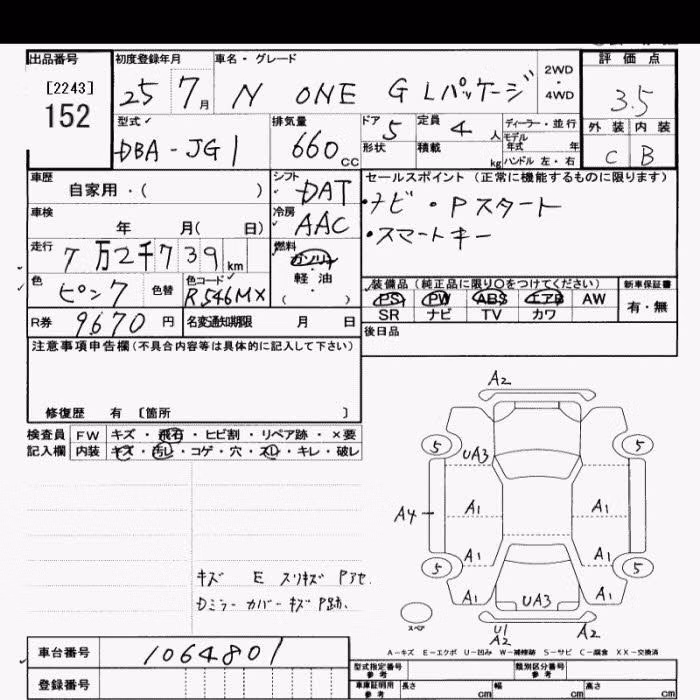 出品番号 初度登録年月 車名・グレード 評価点
[2243]
152
25 7月 N ONE G Lパッケージ 2WD・4WD 3.5
型式 排気量 ドア 定員 ディーラー・並行 外装 内装
DBA-JG1 660cc 5 4人 モデル年式 年 C B
形状 積載 kg ハンドル 左・右
車歴 シフト セールスポイント (正常に機能するものに限ります)
自家用・( ) DAT ・ナビ ・Pスタート
車検 冷房 ・スマートキー
年 月( 日) AAC
走行 燃料
7万2千739km ガソリン
軽油
( )
色 色替 色コード 装備品 (純正品に限り○をつけてください) 新車保証書
ピンク R546MX PS PW ABS エアB AW 有・無
SR ナビ TV カワ
R券 9670円 名変通知期限 月 日 後日品
注意事項申告欄(不具合内容等は具体的に記入して下さい)
修復歴 有 〔箇所 〕
検査員 FW キズ・飛石・ヒビ割・リペア跡・×要
記入欄 内装 キズ・汚レ・コゲ・穴・スレ・キレ・破レ
A2
5 UA3 5
A1 A1
A4
A1 A1
5 5
A1 UA3 A1
U1
A2 A2
スペア
キズ E スリキズ Pアセ.
Dミラーカバーキズ P跡.
A-キズ E-エクボ U-凹み W-補修跡 S-サビ C-腐食 XX-交換済
車台番号 1064801
登録番号
型式指定番号 参考 類別区分番号 参考
車庫証明用 参考 長さ cm 幅 cm 高さ cm